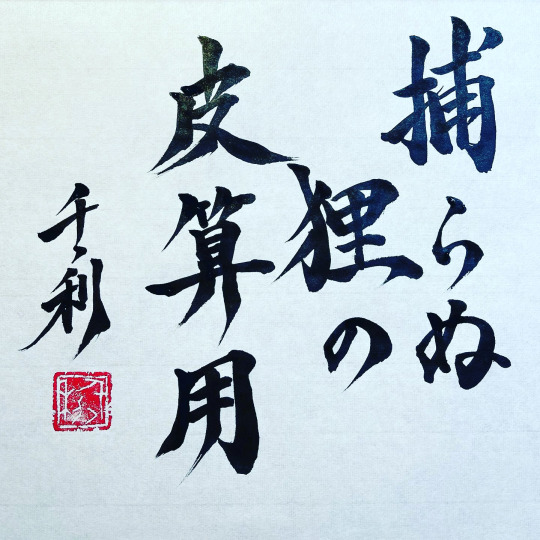 捕らぬ
狸の
皮算用
千利